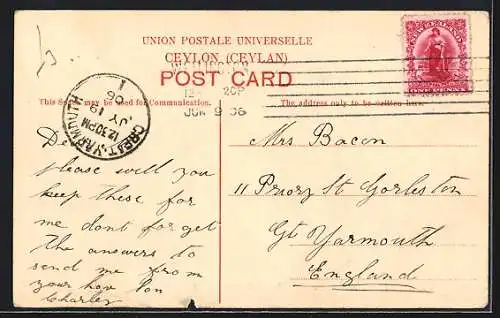 UNION POSTALE UNIVERSELLE
CEYLON (CEYLAN)
POST CARD
This Space may be used for Communication.
The address only to be written here.
NEW ZEALAND
ONE PENNY
JUN 9 06
GREAT YARMOUTH
12.30PM
JY 19
06
please will you
keep these for
me dont forget
the answers to
send me from
your
Son
Charley
Mrs Bacon
11 Priory St Gorleston
Gt Yarmouth
England